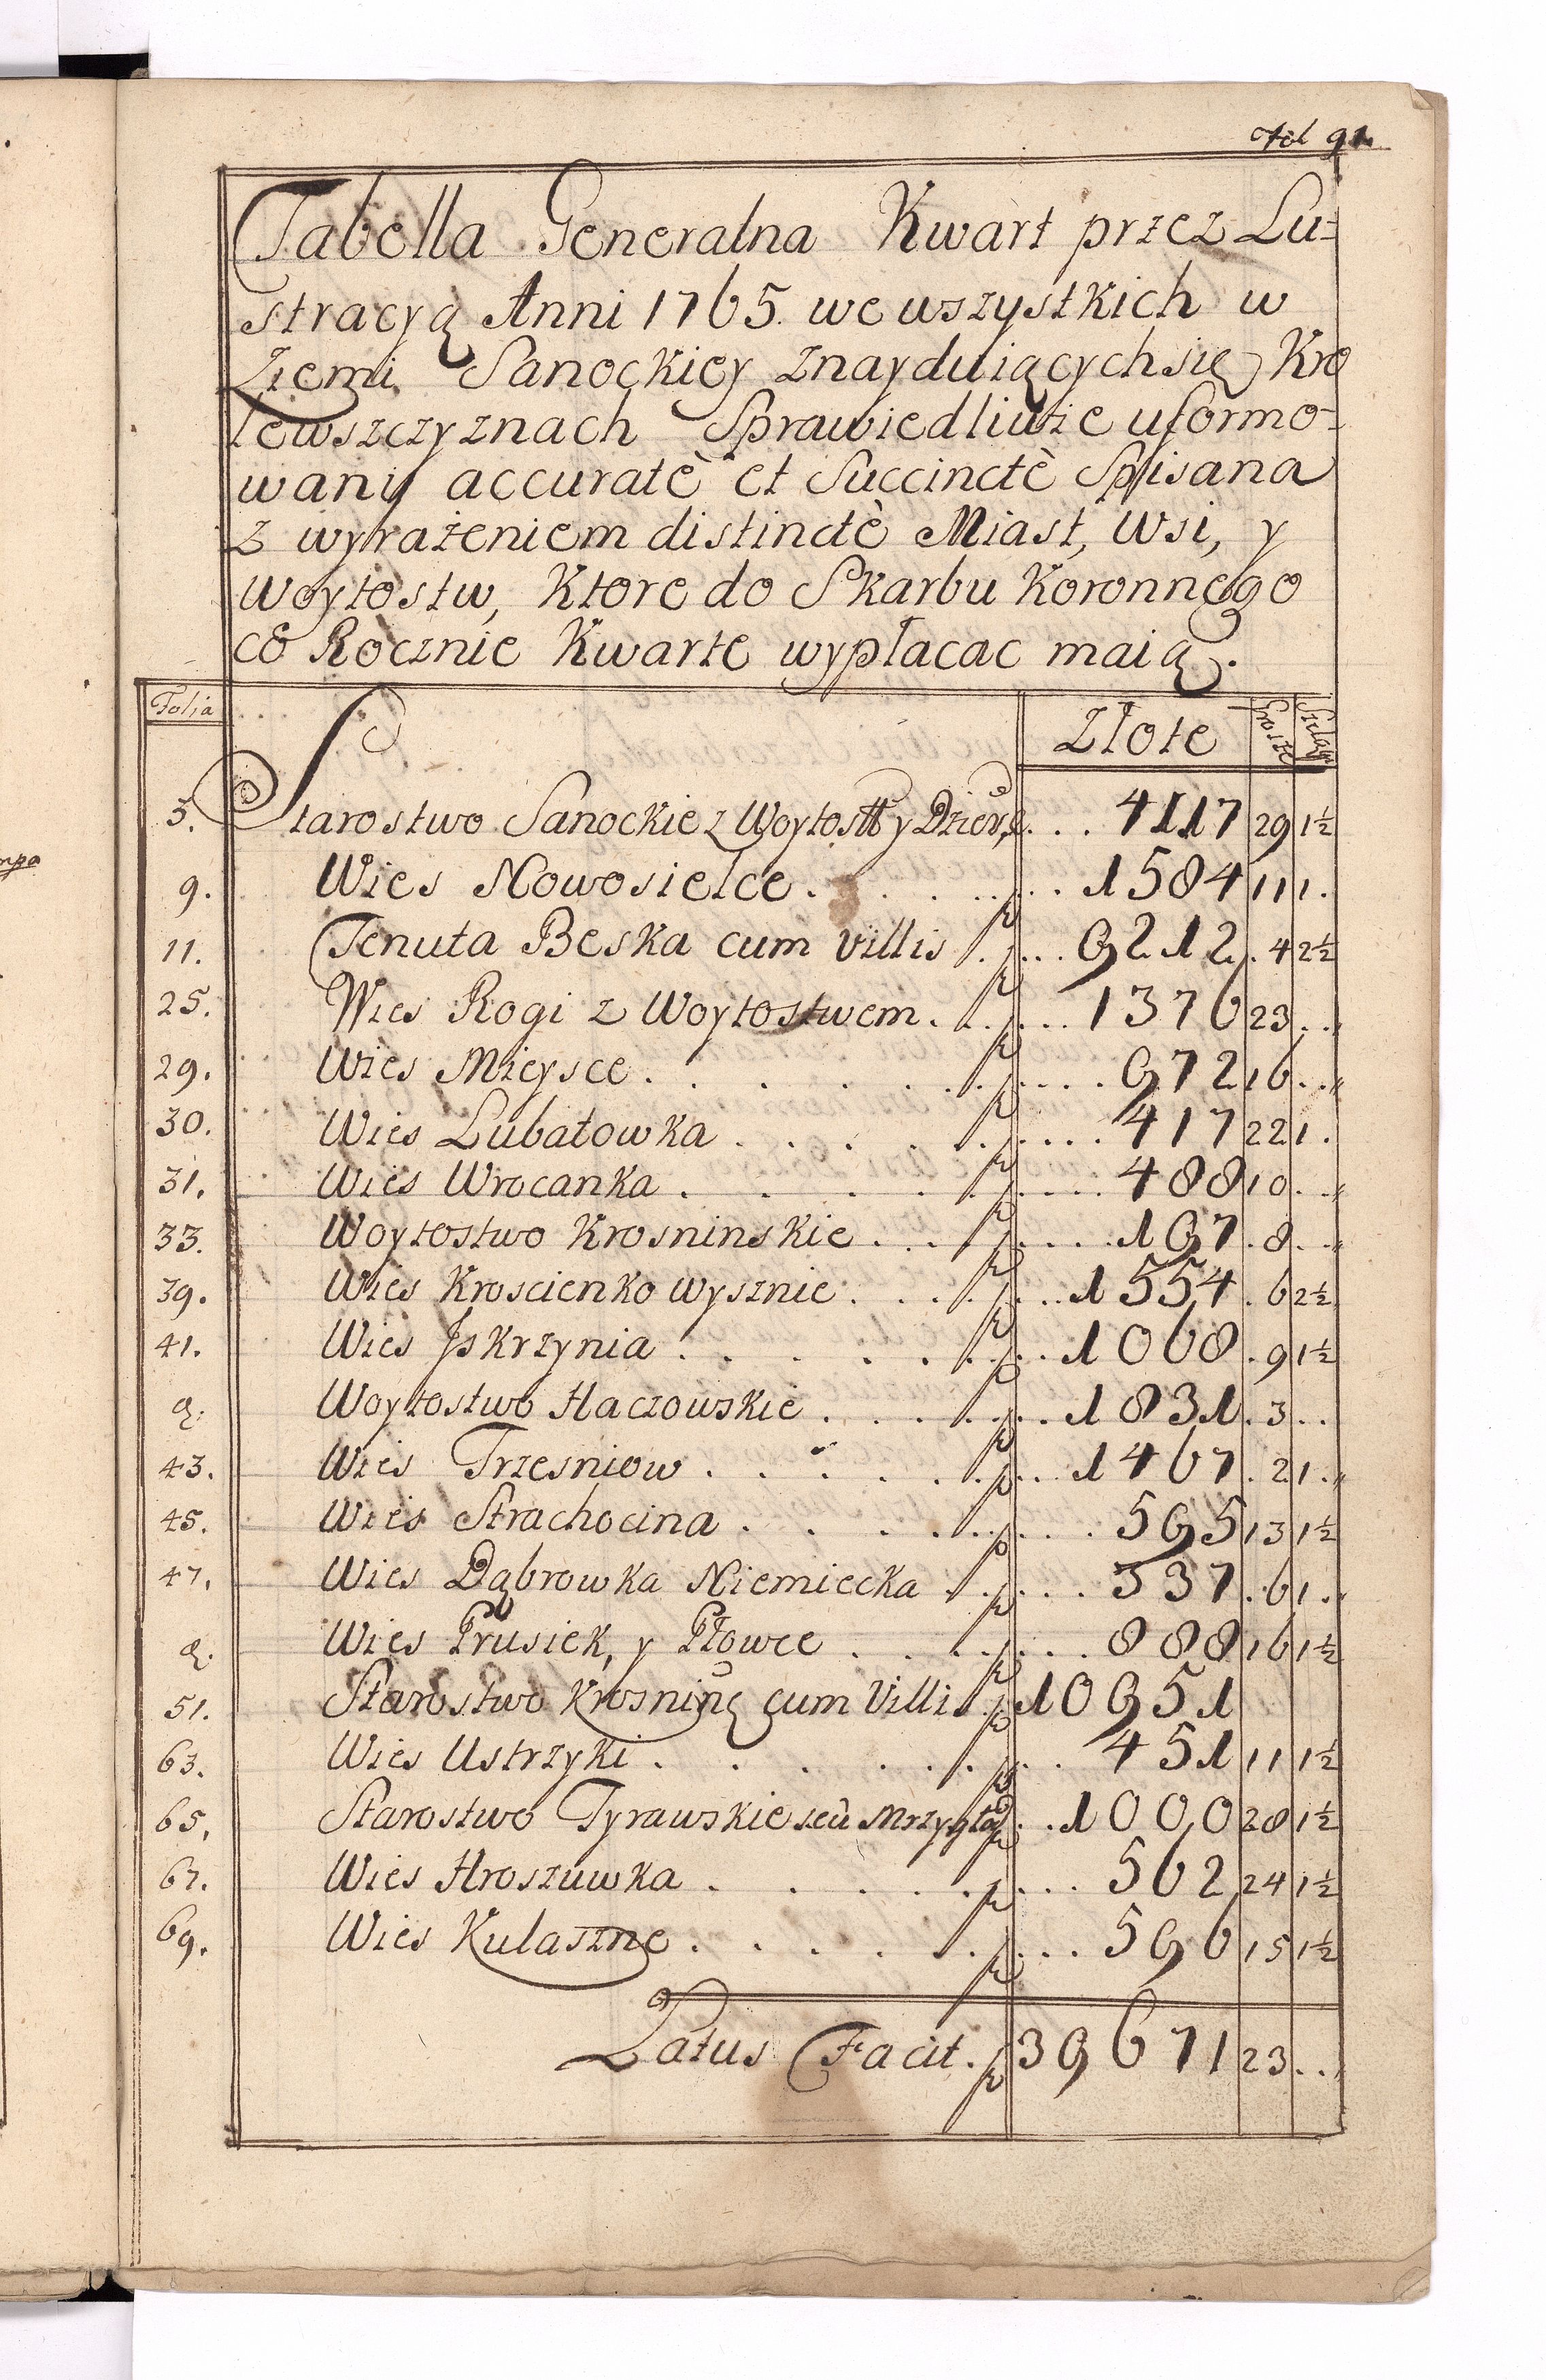 91.
Tabella Generalna Kwart przez Lu=
stracyą Anni 1765. we wszystkich w
Ziemi Sanockiey znayduiących się Kro
lewszczyznach Sprawiedliwie uformo-
wany accuratè et Succinctè Spisana
z wyrażeniem distinctè Miast, Wsi, y
Woytostw, Ktore do Skarbu Koronnego
co Rocznie Kwarte wypłacac maią.
Folia Złote Grosze Szelągi
5. Starostwo Sanockie z Woytostt y Dzierż. . . 4117 29 1½
9. Wies Nowosielce . . . . 1584 11 1.
11. Tenuta Beska cum villis . . . . 9212. . 4 2½
25. Wies Rogi z Woytostwem . . . . 1376 23 . .
29. Wies Mieysce . . . . 972 16 . .
30. Wies Lubatowka . . . . 417 22 1.
31. Wies Wrocanka . . . . 488 10 . .
33. Woytostwo Krosninskie . . . . 197 . 8 . .
39. Wies Kroscienko wysznie . . . . 1554 . 6 2½
41. Wies Jskrzynia . . . . 1068 . 9 1½
Woytostwo Haczowskie . . . . 1831 . 3 . .
43. Wies Trzesniow . . . . 1467 . 2 1.
45. Wies Strachocina . . . . 595 13 1½
47. Wies Dąbrowka Niemiecka . . . . 337 . 6 1 .
Wies Prusiek, y Płowce . . . . 888 16 1½
51. Starostwo Krosninę cum Villis . 10951
63. Wies Ustrzyki . . . . 451 11 1½
65. Starostwo Tyrawskie seu Mrzygłod . . 1000 28 1½
67. Wies Hroszuwka . . . . 562 24 1½
69. Wies Kulaszne . . . . 596 15 1½
Latus Facit. 39671 23 . .